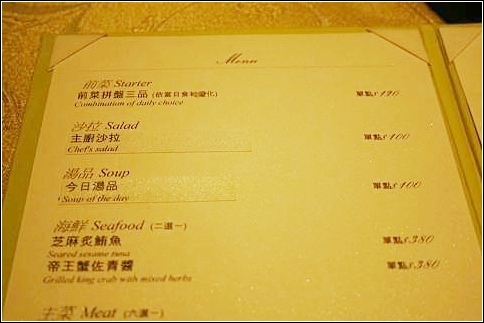 Menu
前菜 Starter
前菜拼盤三品 (依當日食材變化) 單點$120
Combination of daily choice
沙拉 Salad
主廚沙拉 單點$100
Chef's salad
湯品 Soup
今日湯品 單點$100
Soup of the day
海鮮 Seafood (二選一)
芝麻炙鮪魚 單點$380
Seared sesame tuna
帝王蟹佐青醬 單點$380
Grilled king crab with mixed herbs
主菜 Meat (六選一)